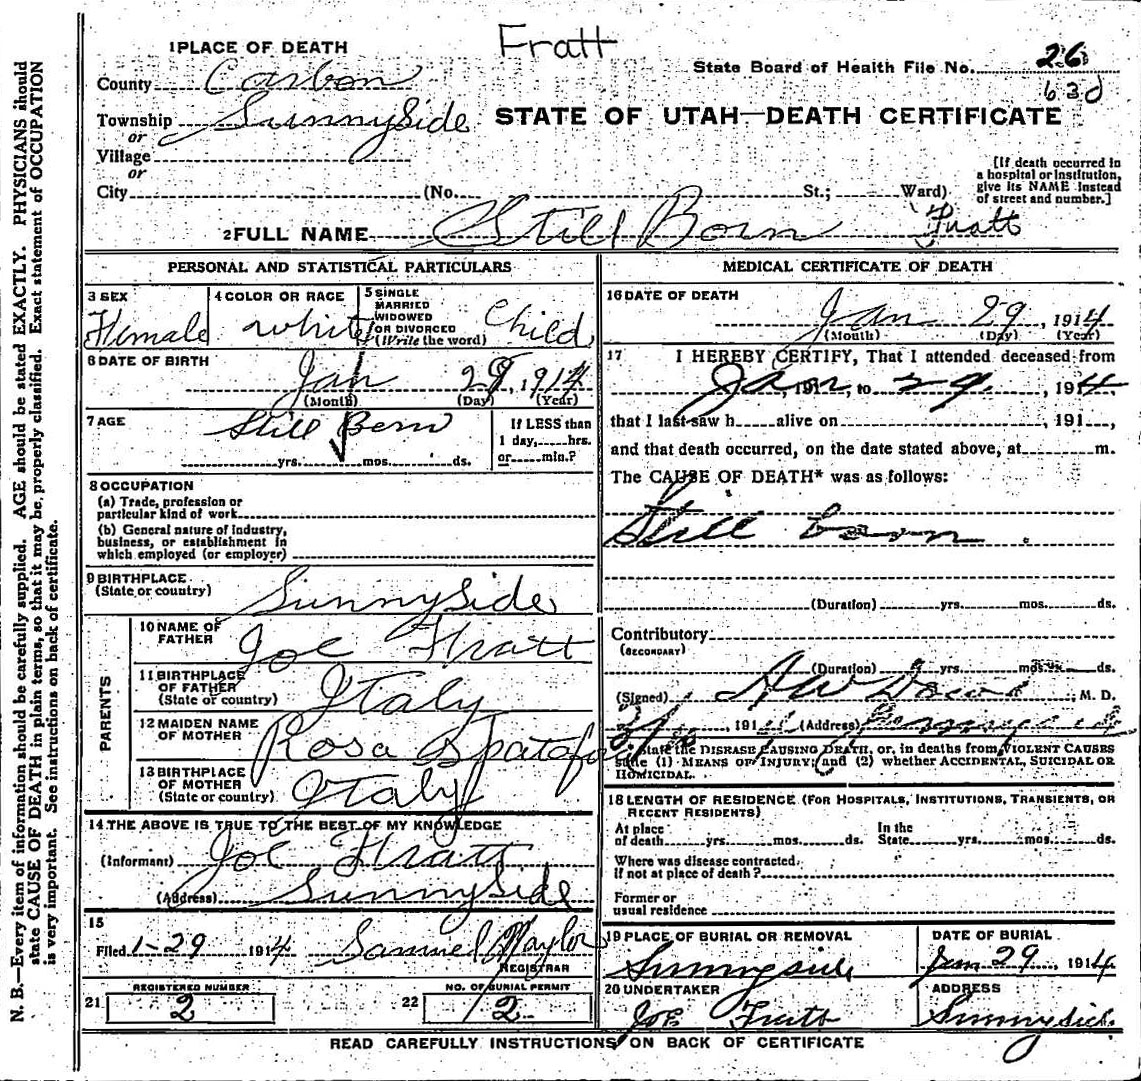 Fratt
1 PLACE OF DEATH
State Board of Health File No. 26
630
County Carbon
Township Sunnyside
STATE OF UTAH—DEATH CERTIFICATE
or
Village
or
City (No. St.; Ward)
[If death occurred in
a hospital or institution,
give its NAME instead
of street and number.]
2 FULL NAME Still Born Fratt
PERSONAL AND STATISTICAL PARTICULARS
3 SEX
Female
4 COLOR OR RACE
White
5 SINGLE
MARRIED
WIDOWED
OR DIVORCED
(Write the word)
Child
6 DATE OF BIRTH
Jan 29, 1914
(Month) (Day) (Year)
7 AGE
Still Born
yrs. mos. ds.
If LESS than
1 day, hrs.
or min.?
8 OCCUPATION
(a) Trade, profession or
particular kind of work
(b) General nature of industry,
business, or establishment in
which employed (or employer)
9 BIRTHPLACE
(State or country)
Sunnyside
PARENTS
10 NAME OF
FATHER
Joe Fratt
11 BIRTHPLACE
OF FATHER
(State or country)
Italy
12 MAIDEN NAME
OF MOTHER
Rosa Spatafo
13 BIRTHPLACE
OF MOTHER
(State or country)
Italy
14 THE ABOVE IS TRUE TO THE BEST OF MY KNOWLEDGE
(Informant) Joe Fratt
(Address) Sunnyside
15
Filed 1-29 1914 Samuel Naylor
REGISTRAR
21
REGISTERED NUMBER
2
22
NO. OF BURIAL PERMIT
2
MEDICAL CERTIFICATE OF DEATH
16 DATE OF DEATH
Jan 29, 1914
(Month) (Day) (Year)
17 I HEREBY CERTIFY, That I attended deceased from
Jan, 191 , to 29, 1914
that I last saw h alive on , 191 ,
and that death occurred, on the date stated above, at m.
The CAUSE OF DEATH* was as follows:
Still born
(Duration) yrs. mos. ds.
Contributory
(SECONDARY)
(Duration) yrs. mos. ds.
(Signed) A W Dowd M. D.
191 (Address) Sunnyside
*State the DISEASE CAUSING DEATH, or, in deaths from VIOLENT CAUSES
state (1) MEANS OF INJURY; and (2) whether ACCIDENTAL, SUICIDAL OR
HOMICIDAL.
18 LENGTH OF RESIDENCE (FOR HOSPITALS, INSTITUTIONS, TRANSIENTS, OR
RECENT RESIDENTS)
At place
of death yrs. mos. ds.
In the
State yrs. mos. ds.
Where was disease contracted
if not at place of death?
Former or
usual residence
19 PLACE OF BURIAL OR REMOVAL
Sunnyside
DATE OF BURIAL
Jan 29, 1914
20 UNDERTAKER
Joe Fratt
ADDRESS
Sunnyside
READ CAREFULLY INSTRUCTIONS ON BACK OF CERTIFICATE
N. B.—Every item of information should be carefully supplied. AGE should be stated EXACTLY. PHYSICIANS should
state CAUSE OF DEATH in plain terms, so that it may be properly classified. Exact statement of OCCUPATION
is very important. See instructions on back of certificate.